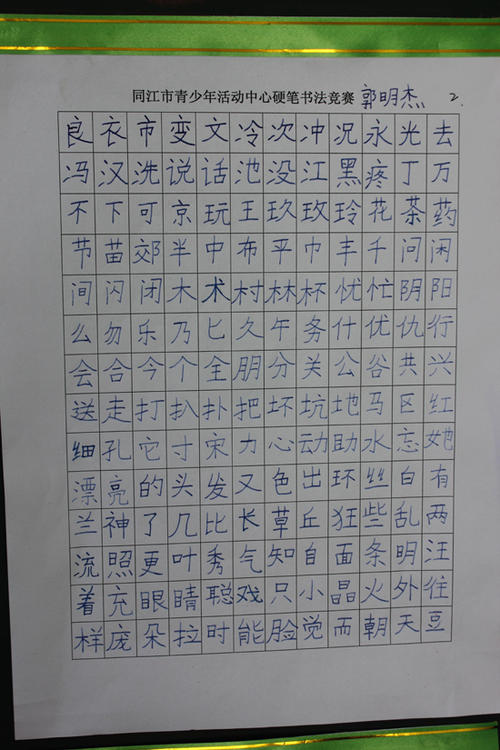 同江市青少年活动中心硬笔书法竞赛 郭明杰 2.
良衣市变文冷次冲况永光去
冯汉洗说话池没江黑疼丁万
不下可京玩王玖玫玲花茶药
节苗郊半中布平巾丰千问闲
间闪闭木术村林杯忧忙阴阳
么勿乐乃匕久午务什优仇行
会合今个全朋分关公谷共兴
送走打扒扑把坏坑地马区红
细孔它寸宋力心动助水忘她
漂亮的头发又色出环丝白有
兰神了几比长草丘狂些乱两
流照更叶秀气知自面条明汪
着充眼睛聪戏只小晶火外往
样庞朵拉时能脸觉而朝天豆